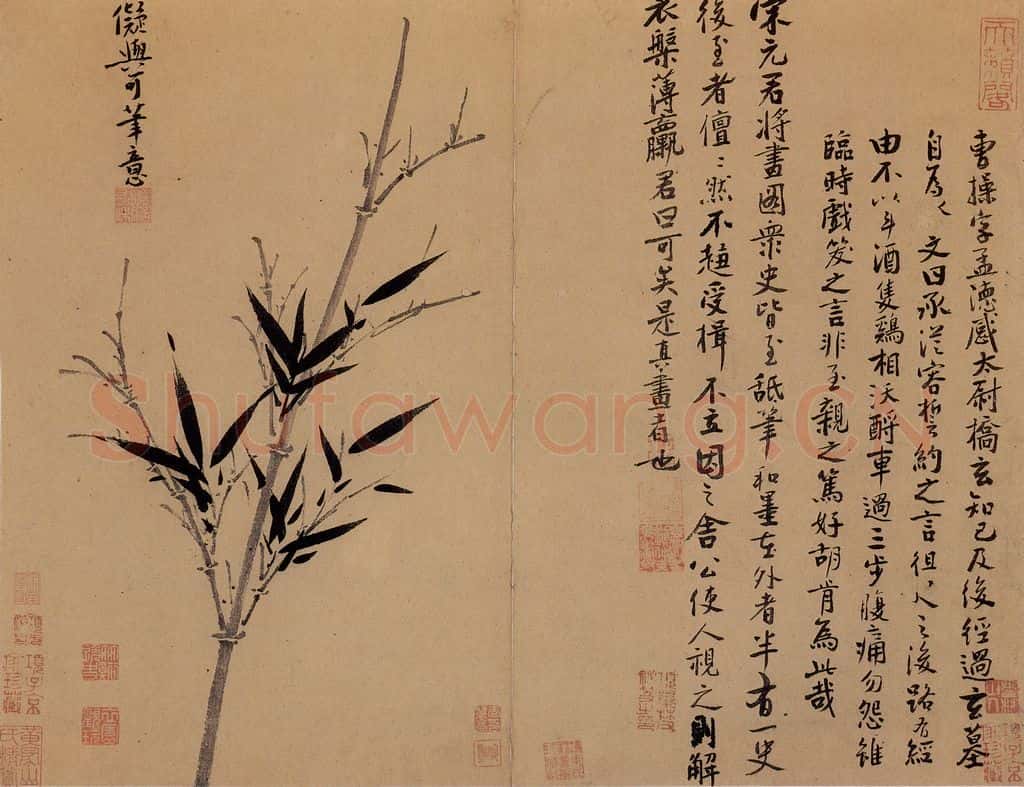 天籟閣
曹操字孟德感太尉橋玄知己及後經過玄墓
自為之文曰承從容誓約之言徂之後路有經
由不以斗酒隻鷄相沃酹車過三步腹痛勿怨雖
臨時戲笑之言非至親之篤好胡肯為此哉
宋元君將畫圖衆史皆至舐筆和墨在外者半有一史
後至者儃〻然不趨受揖不立因之舍公使人視之則解
衣槃薄臝君曰可矣是真畫者也
儗與可筆意
項子京家珍藏
Shufawang.CN